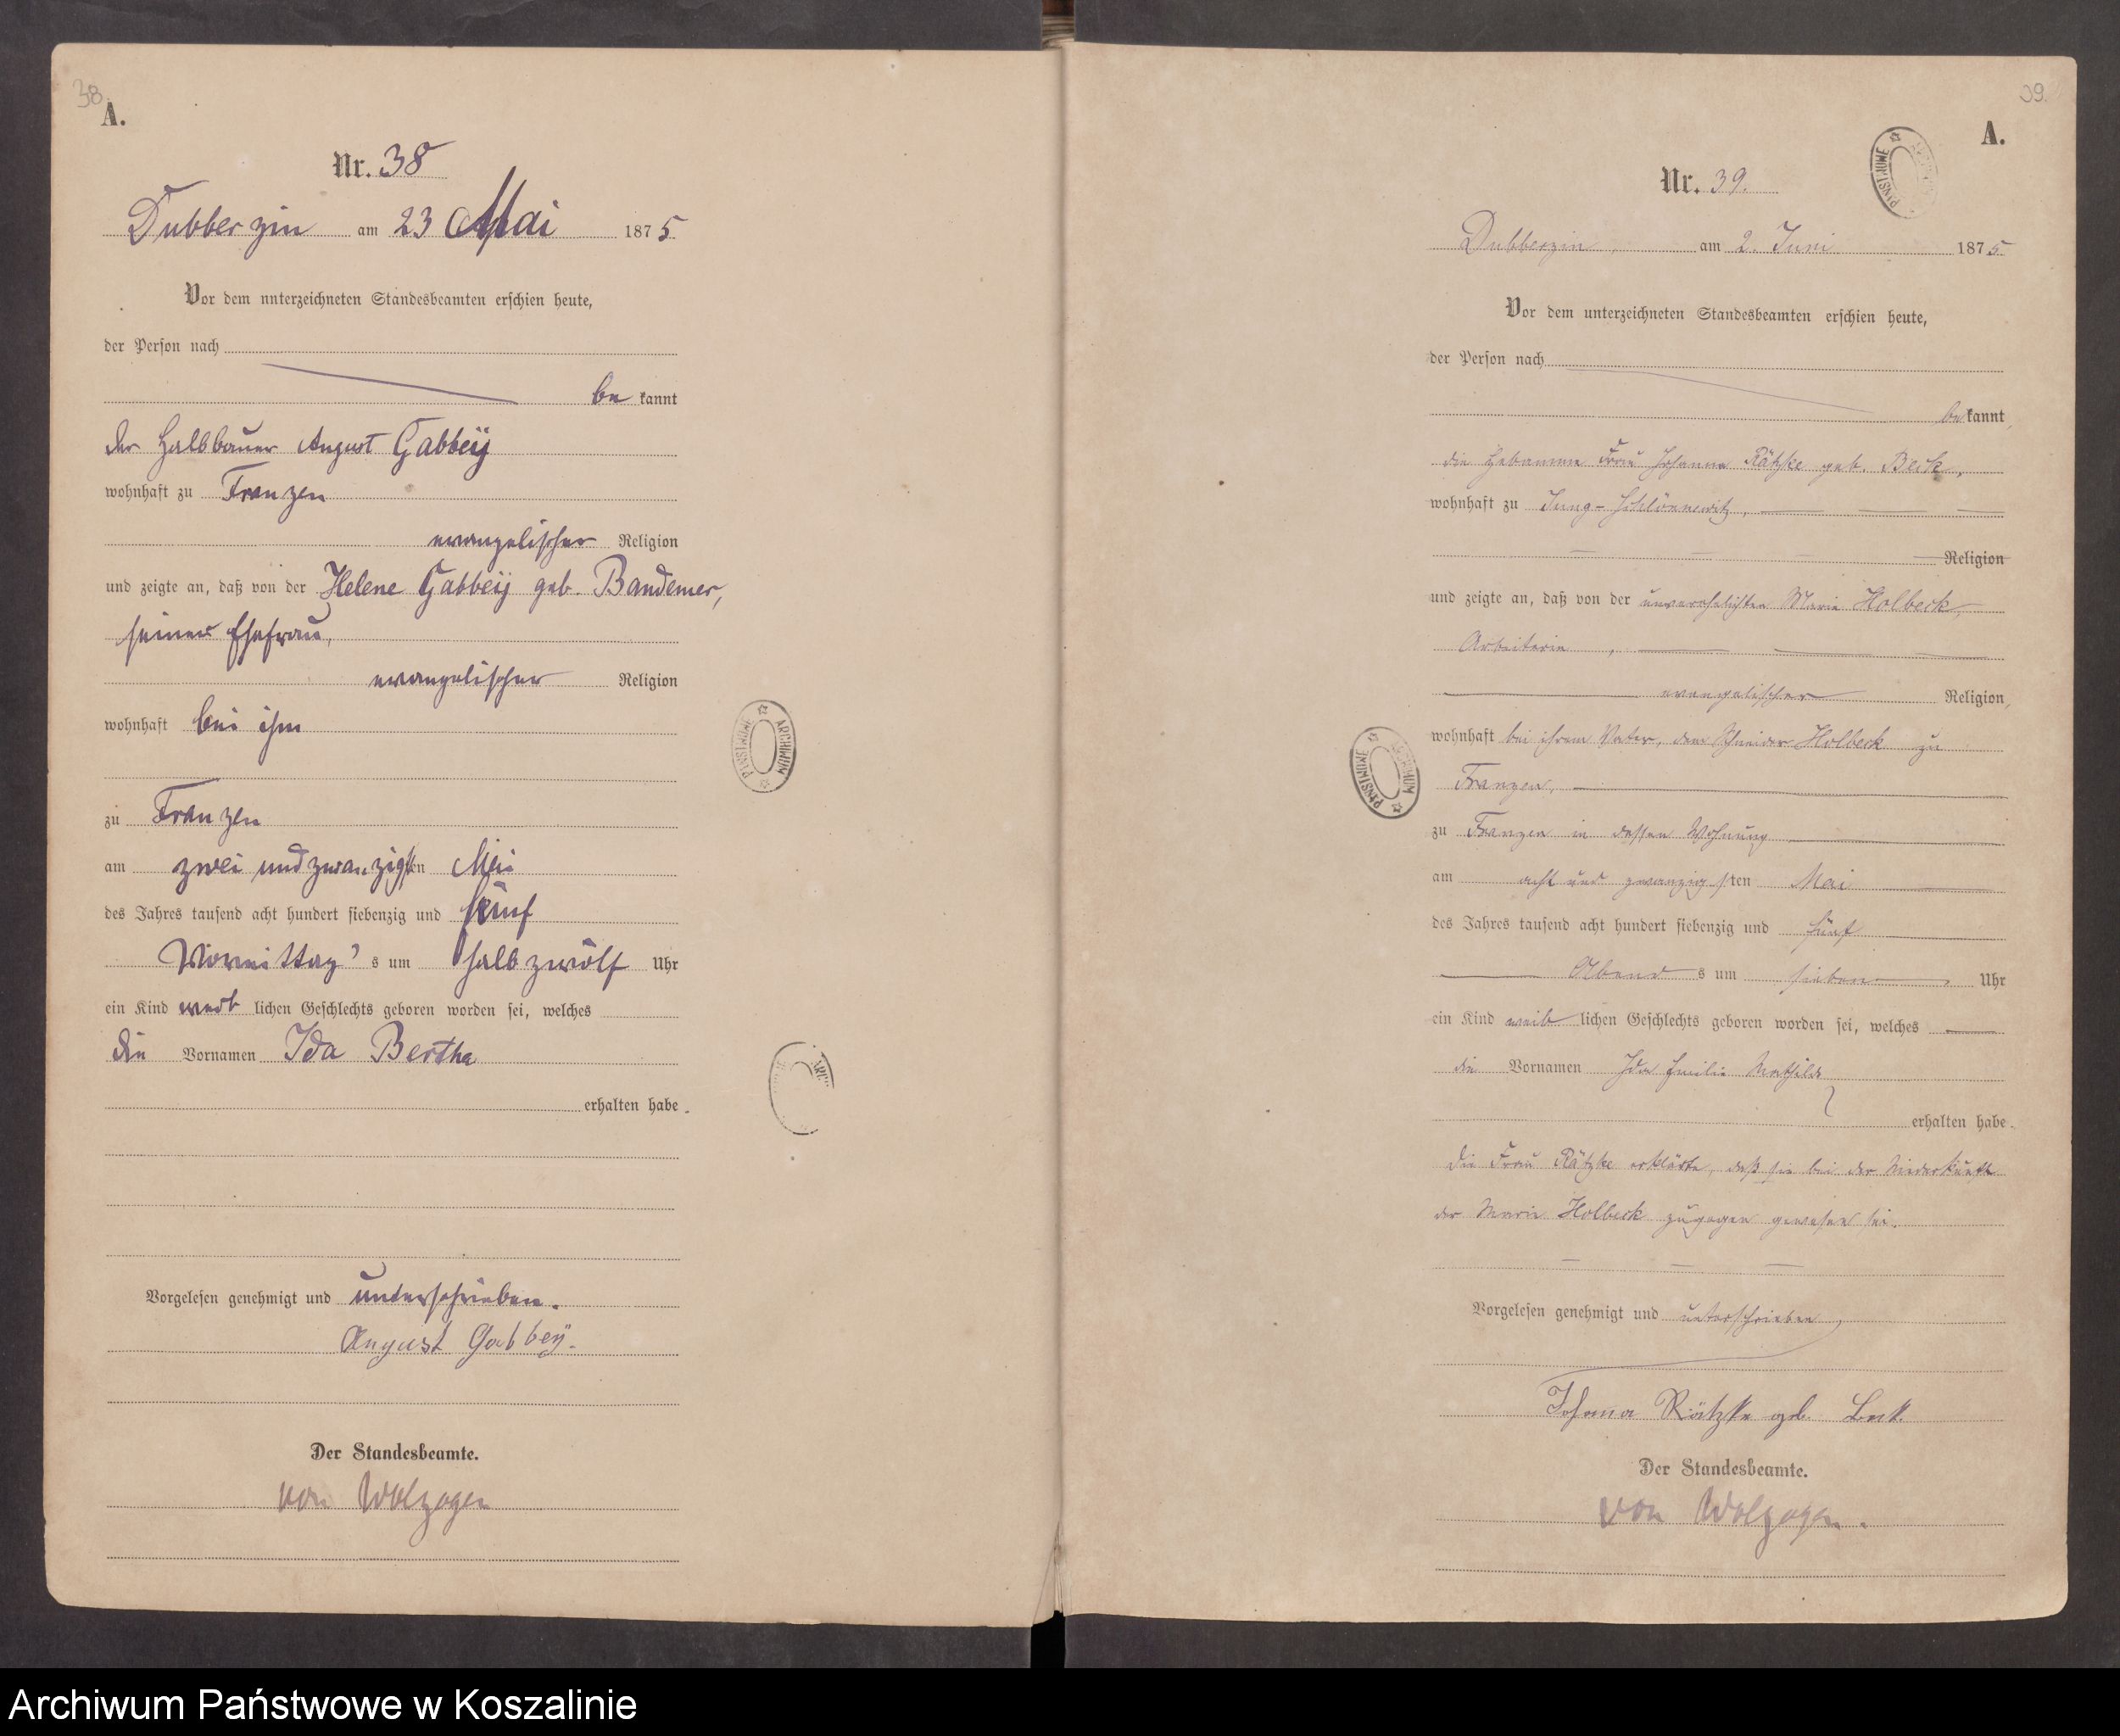 38.
A.
Nr. 38
Dubberzin am 23 Mai 1875
Vor dem unterzeichneten Standesbeamten erschien heute,
der Person nach
bekannt
der Halbbauer August Gabbeÿ
wohnhaft zu Franzen
evangelischer Religion
und zeigte an, daß von der Helene Gabbeÿ geb. Bandemer,
seiner Ehefrau,
evangelischer Religion
wohnhaft bei ihm
zu Franzen
am zwei und zwanzigsten Mai
des Jahres tausend acht hundert siebenzig und fünf
Vormittag's um halb zwölf Uhr
ein Kind weiblichen Geschlechts geboren worden sei, welches
die Vornamen Ida Bertha
erhalten habe.
Vorgelesen genehmigt und unterschrieben.
August Gabbeÿ.
Der Standesbeamte.
von Wolzogen
ARCHIWUM PAŃSTWOWE
39.
A.
Nr. 39.
Dubberzin, am 2. Juni 1875
Vor dem unterzeichneten Standesbeamten erschien heute,
der Person nach
bekannt,
die Hebamme Frau Johanna Rätzke geb. Beck,
wohnhaft zu Jung-Schlönnewitz,
Religion
und zeigte an, daß von der unverehelichten Marie Holbeck,
Arbeiterin,
evangelischer Religion,
wohnhaft bei ihrem Vater, dem Schneider Holbeck zu
Franzen,
zu Franzen in dessen Wohnung
am acht und zwanzigsten Mai
des Jahres tausend acht hundert siebenzig und fünf
Abends um sieben Uhr
ein Kind weiblichen Geschlechts geboren worden sei, welches
die Vornamen Ida Emilie Mathilde
erhalten habe.
Die Frau Rätzke erklärte, daß sie bei der Niederkunft
der Marie Holbeck zugegen gewesen sei.
Vorgelesen genehmigt und unterschrieben
Johanna Rätzke geb. Beck.
Der Standesbeamte.
von Wolzogen.
ARCHIWUM PAŃSTWOWE
Archiwum Państwowe w Koszalinie